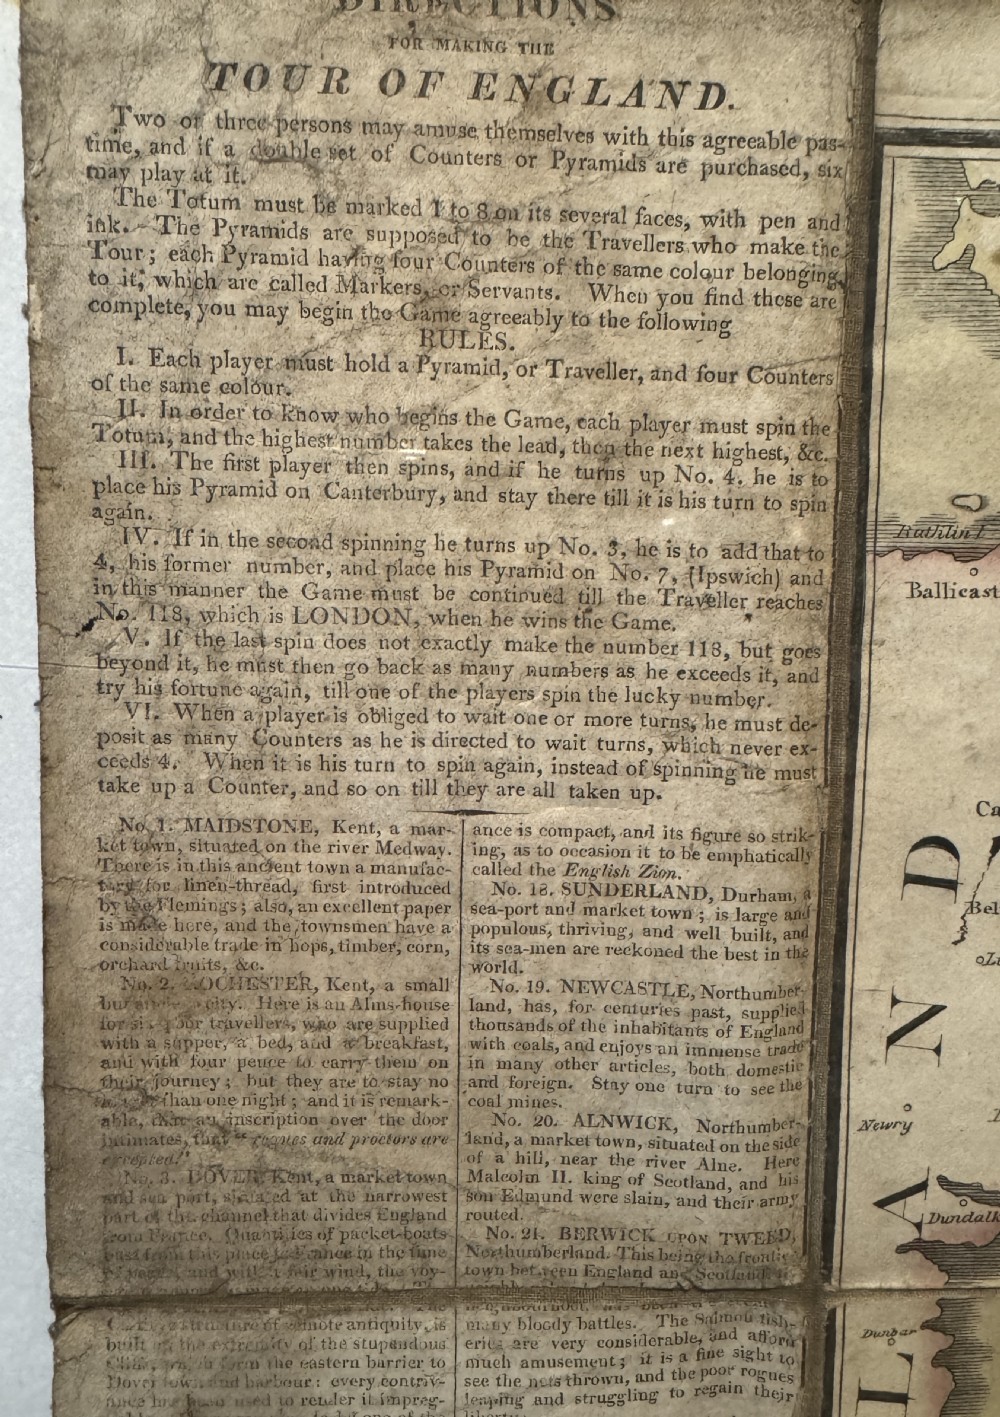 DIRECTIONS
FOR MAKING THE
TOUR OF ENGLAND.
Two or three persons may amuse themselves with this agreeable pas-
time, and if a double set of Counters or Pyramids are purchased, six
may play at it.
The Totum must be marked 1 to 8 on its several faces, with pen and
ink. The Pyramids are supposed to be the Travellers who make the
Tour; each Pyramid having four Counters of the same colour belonging
to it, which are called Markers, or Servants. When you find these are
complete, you may begin the Game agreeably to the following
RULES.
I. Each player must hold a Pyramid, or Traveller, and four Counters
of the same colour.
II. In order to know who begins the Game, each player must spin the
Totum, and the highest number takes the lead, then the next highest, &c.
III. The first player then spins, and if he turns up No. 4, he is to
place his Pyramid on Canterbury, and stay there till it is his turn to spin
again.
IV. If in the second spinning he turns up No. 3, he is to add that to
4, his former number, and place his Pyramid on No. 7, (Ipswich) and
in this manner the Game must be continued till the Traveller reaches
No. 118, which is LONDON, when he wins the Game.
V. If the last spin does not exactly make the number 118, but goes
beyond it, he must then go back as many numbers as he exceeds it, and
try his fortune again, till one of the players spin the lucky number.
VI. When a player is obliged to wait one or more turns, he must de-
posit as many Counters as he is directed to wait turns, which never ex-
ceeds 4. When it is his turn to spin again, instead of spinning he must
take up a Counter, and so on till they are all taken up.
No. 1. MAIDSTONE, Kent, a mar-
ket town, situated on the river Medway.
There is in this ancient town a manufac-
tory for linen-thread, first introduced
by the Flemings; also, an excellent paper
is made here, and the townsmen have a
considerable trade in hops, timber, corn,
orchard fruits, &c.
No. 2. ROCHESTER, Kent, a small
but city. Here is an Alms-house
for six poor travellers, who are supplied
with a supper, a bed, and a breakfast,
and with four pence to carry them on
their journey; but they are to stay no
than one night; and it is remark-
able, that an inscription over the door
intimates, that "rogues and proctors are
excepted."
No. 3. DOVER, Kent, a market town
and sea port, situated at the narrowest
part of the channel that divides England
from France. Quantities of packet-boats
pass from this place to France in the time
of peace, and with a fair wind, the voy-
The
structure of remote antiquity, is
built on the extremity of the stupendous
Cliffs, which form the eastern barrier to
Dover town and harbour: every contriv-
ance has been used to render it impreg-
ance is compact, and its figure so strik-
ing, as to occasion it to be emphatically
called the English Zion.
No. 18. SUNDERLAND, Durham, a
sea-port and market town; is large and
populous, thriving, and well built, and
its sea-men are reckoned the best in the
world.
No. 19. NEWCASTLE, Northumber-
land, has, for centuries past, supplied
thousands of the inhabitants of England
with coals, and enjoys an immense trade
in many other articles, both domestic
and foreign. Stay one turn to see the
coal mines.
No. 20. ALNWICK, Northumber-
land, a market town, situated on the side
of a hill, near the river Alne. Here
Malcolm II. king of Scotland, and his
son Edmund were slain, and their army
routed.
No. 21. BERWICK UPON TWEED,
Northumberland. This being the frontier
town between England and Scotland,
neighbourhood, has been
many bloody battles. The Salmon fish-
eries are very considerable, and afford
much amusement; it is a fine sight to
see the nets thrown, and the poor rogues
leaping and struggling to regain their
liberty.
Rathlin I
Ballicast
Ca
Bel
Newry
Dundalk
Dunbar
L A N D